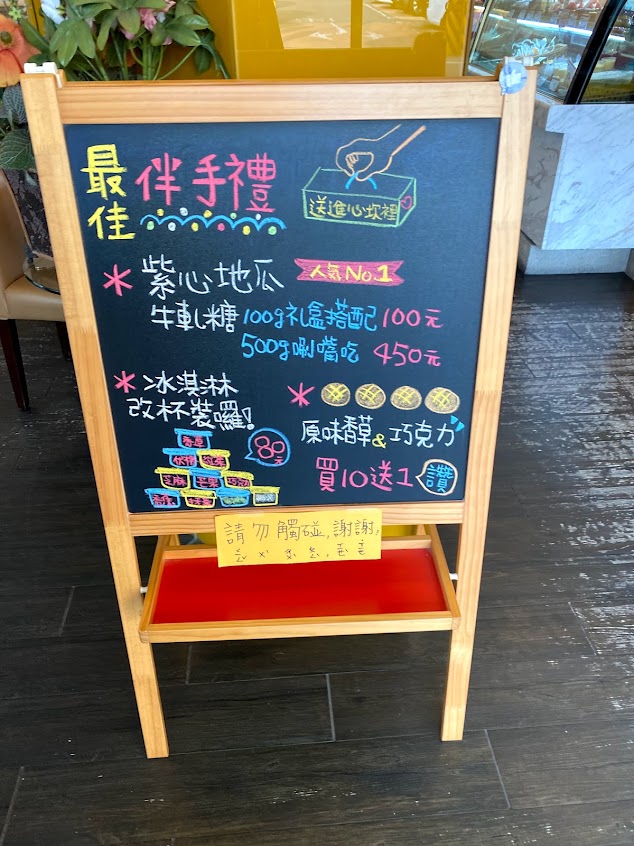 最佳
伴手禮
送進心坎裡
*紫心地瓜
人氣No.1
牛軋糖 100g礼盒搭配 100元
500g唰嘴吃 450元
*冰淇淋
改杯裝囉!
80元
*
原味香草&巧克力
買10送1
讚
香草
芝麻 芒果
請勿觸碰,謝謝,